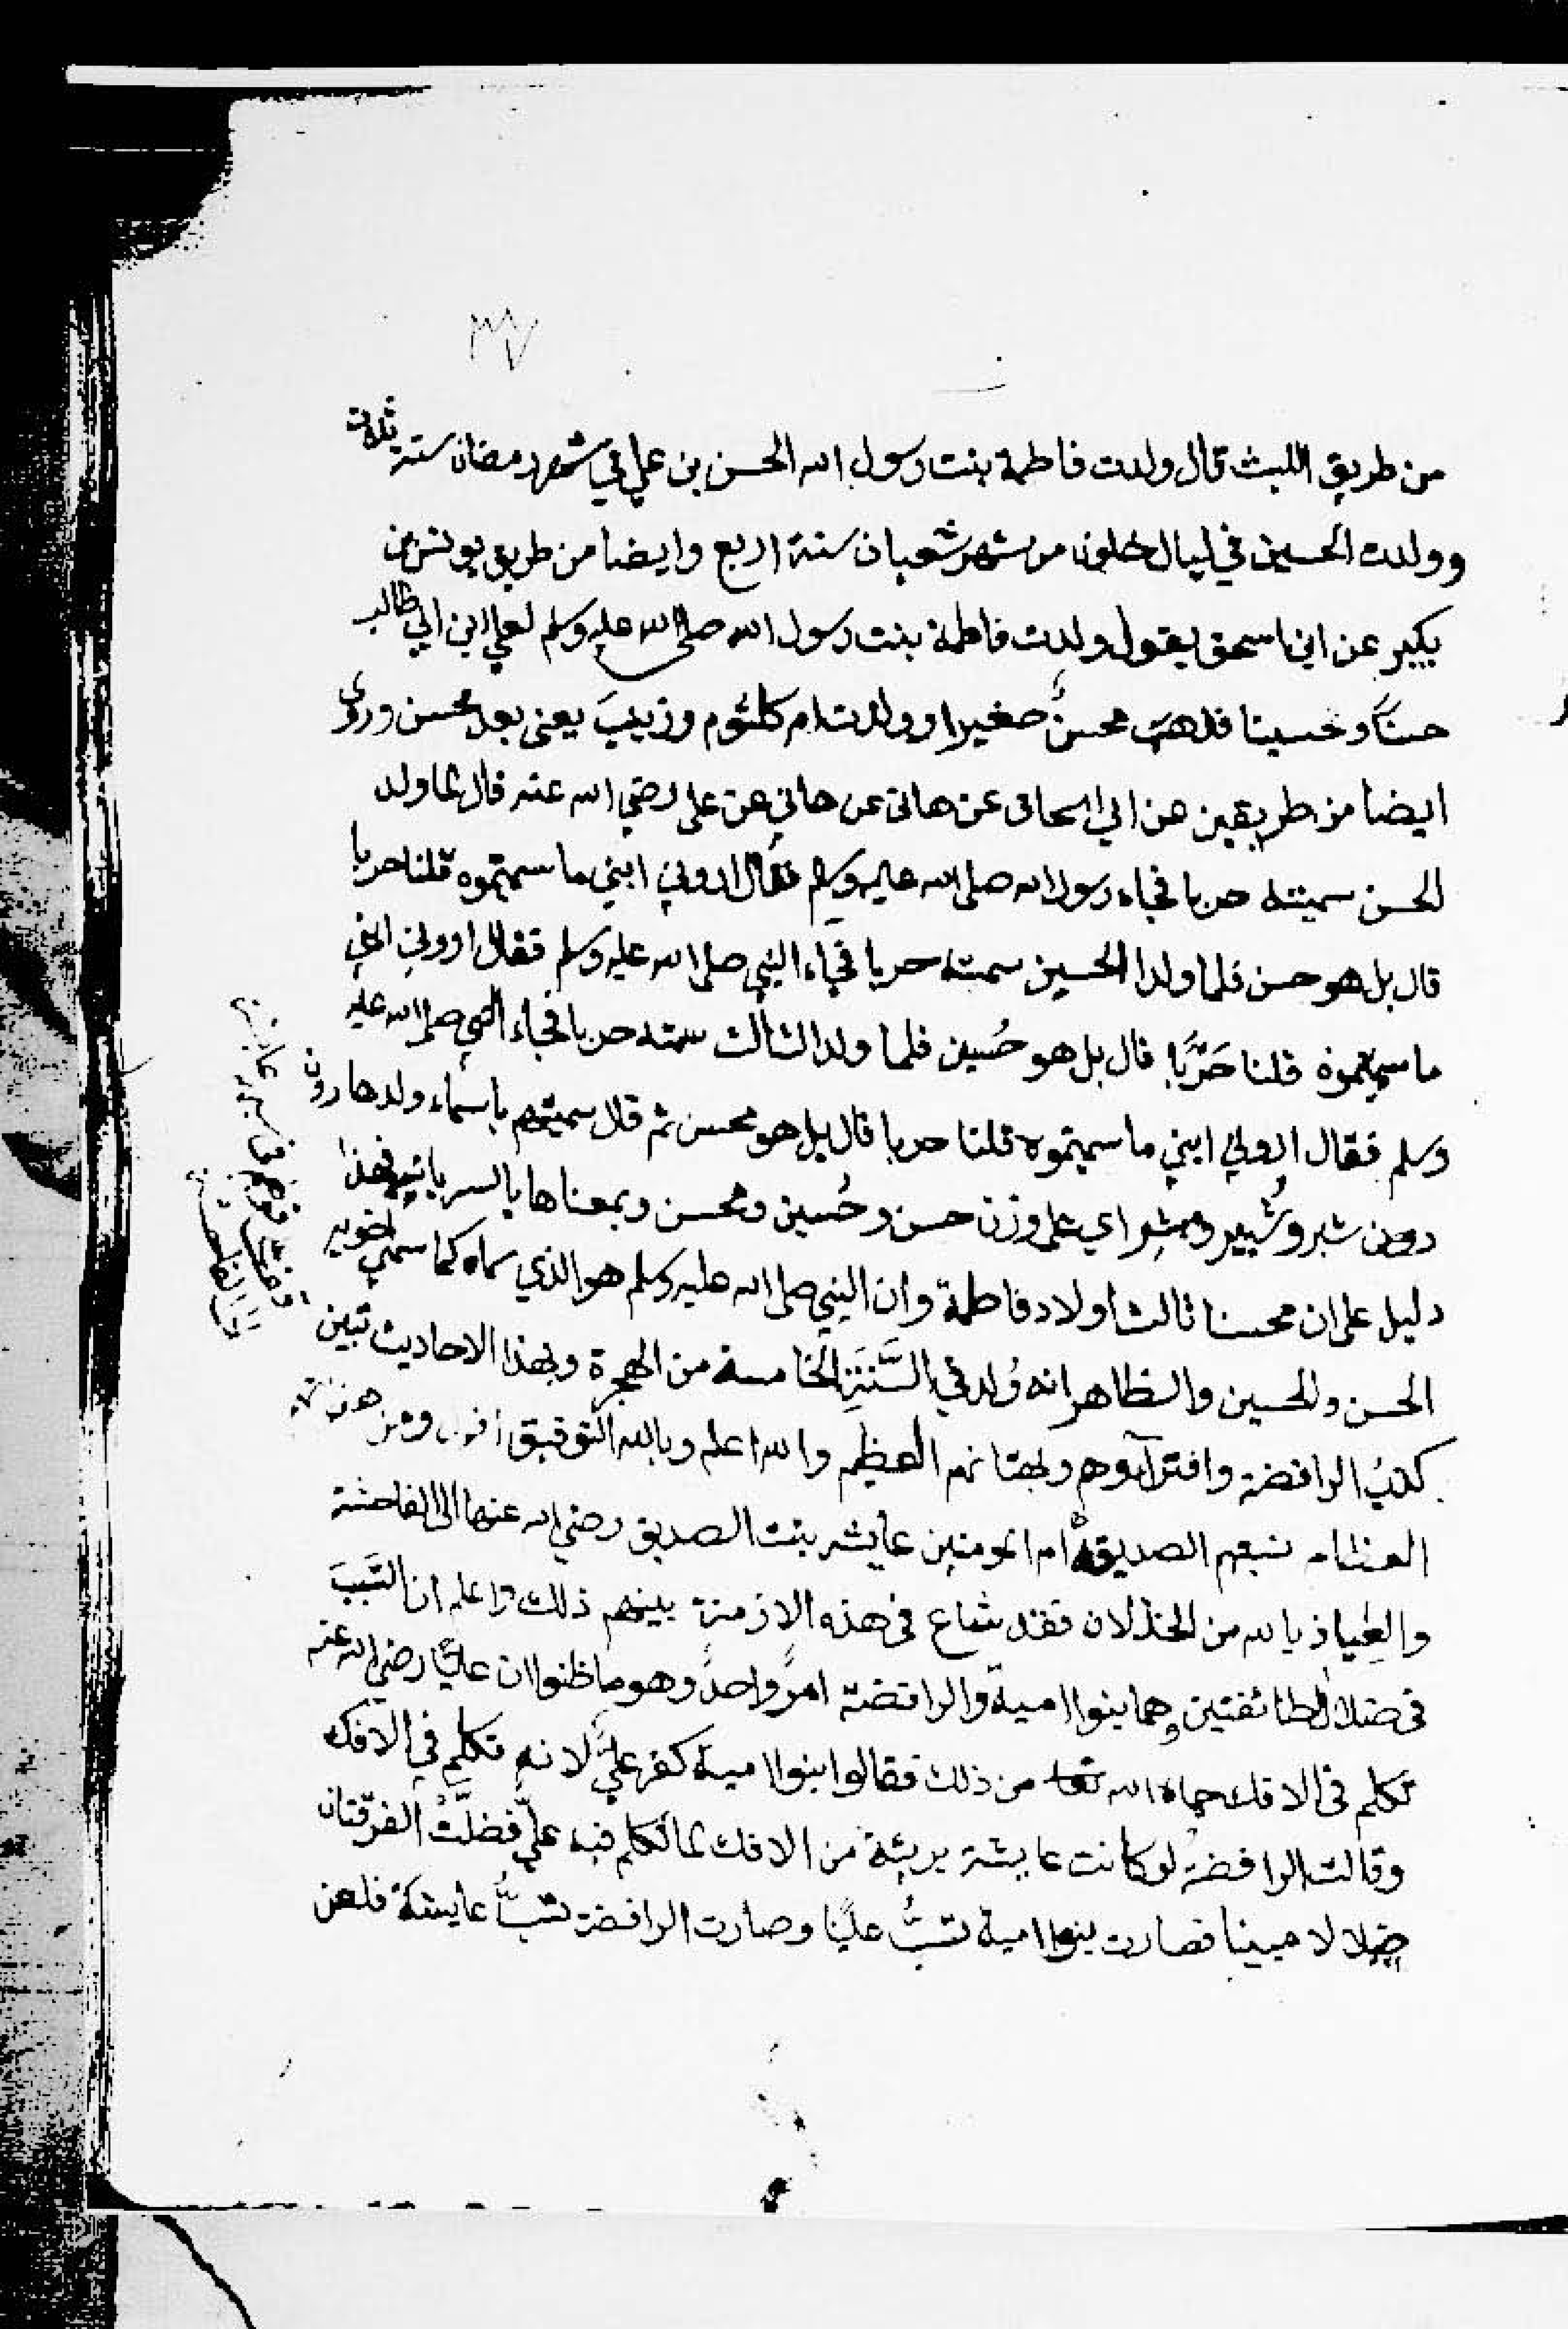 ٣٧
من طريق الليث قال ولدت فاطمة بنت رسول الله الحسن بن علي في شهر رمضان سنة ثلاث
وولدت الحسين في ليال خلون من شهر شعبان سنة اربع وايضا من طريق يونس بن
بكير عن ابن اسحق يقول ولدت فاطمة بنت رسول الله صلى الله عليه وسلم لعلي ابن ابي طالب
حسنًا وحسينا فذهب محسنٌ صغيرا وولدت ام كلثوم وزينبَ يعنى بعد محسن وروى
ايضا من طريقين عن ابي اسحاق عن هانى عن هاني عن على رضي الله عنه قال لما ولد
الحسن سميته حربا فجاء رسول الله صلى الله عليه وسلم فقال اروني ابني ما سميتموه قلنا حربا
قال بل هو حسن فلما ولد الحسين سميته حربا فجاء النبي صلى الله عليه وسلم فقال اروني ابني
ما سميتموه قلنا حَرْبًا قال بل هو حُسين فلما ولد الثالث سميته حربا فجاء النبي صلى الله عليه
وسلم فقال اروني ابني ما سميتموه قلنا حربا قال بل هو محسن ثم قال سميتهم باسماء ولد هارون
شبر وشُبير ومشبر اي على وزن حسن وحُسين ومحسن وبمعناها بالسريانيه فهذا
دليل على ان محسنا ثالث اولاد فاطمة وان النبي صلى الله عليه وسلم هو الذي سماه كما سمى اخويه
الحسن والحسين والظاهر انه وُلد في السَّنَةِ الخامسة من الهجرة وبهذا الاحاديث تبين
كذبُ الرافضة وافترآؤهم وبهتانهم العظيم والله اعلم وبالله التوفيق اقول ومن هوناتهم
العظام نسبهم الصديقة ام المومنين عايشه بنت الصديق رضي الله عنها الى الفاحشة
والعِياذ بالله من الخذلان فقد شاع في هذه الازمنة بينهم ذلك واعلم ان السَّبَبَ
في ضلال الطائفتين وهما بنوا امية والرافضة امرٌ واحدٌ وهو ما ظنوا ان عليًّا رضي الله عنه
تكلم في الافك حماه الله تعا من ذلك فقالوا بنوا امية كفر عليٌّ لانه تكلم في الافك
وقالت الرافضةُ لو كانت عايشة بريئة من الافك لما تكلم فيه عليٌّ فضلَّتْ الفرقتان
ضلالا مبينا فصارت بنوا امية تسبُّ عليًّا وصارت الرافضة تسبُّ عايشة فلعن